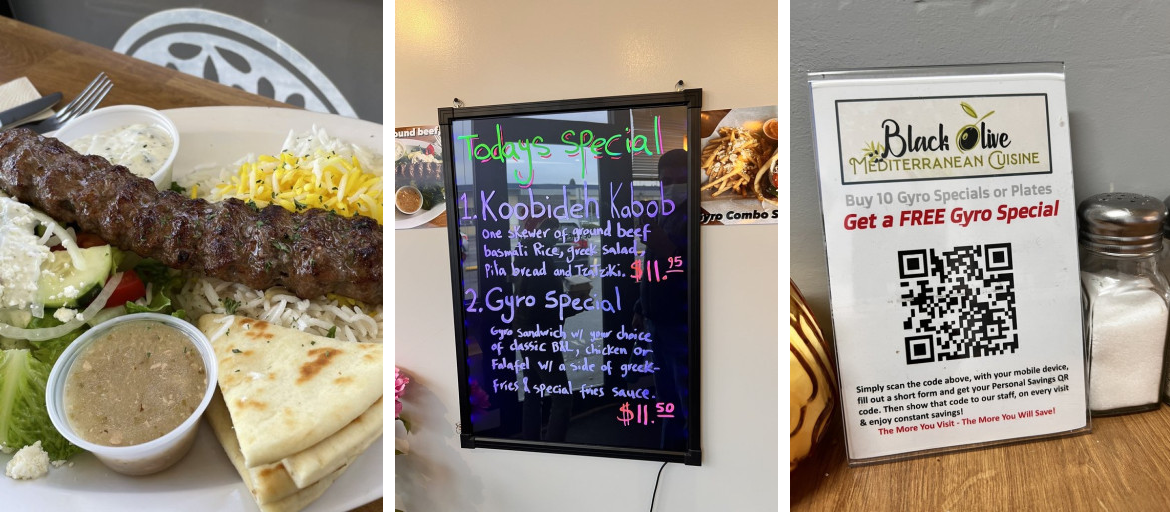 ound beef,
Todays Special
1. Koobideh Kabob
one skewer of ground beef
basmati Rice, greek salad,
Pita bread and Tzatziki. $11.95
2. Gyro Special
Gyro Sandwich w/ your choice
of classic B&L, chicken or
Falafel w/ a side of greek-
fries & special fries sauce.
$11.50
Gyro Combo S
Black Olive
MEDITERRANEAN CUISINE
Buy 10 Gyro Specials or Plates
Get a FREE Gyro Special
Simply scan the code above, with your mobile device,
fill out a short form and get your Personal Savings QR
code. Then show that code to our staff, on every visit
& enjoy constant savings!
The More You Visit - The More You Will Save!